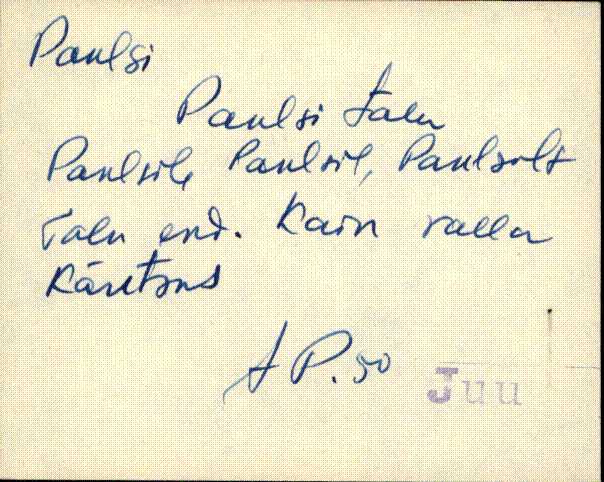 Paulsi
Paulsi talu
Paulsile Paulsil, Paulsilt
Talu end. Kaiu valla
A P. 50
Juu